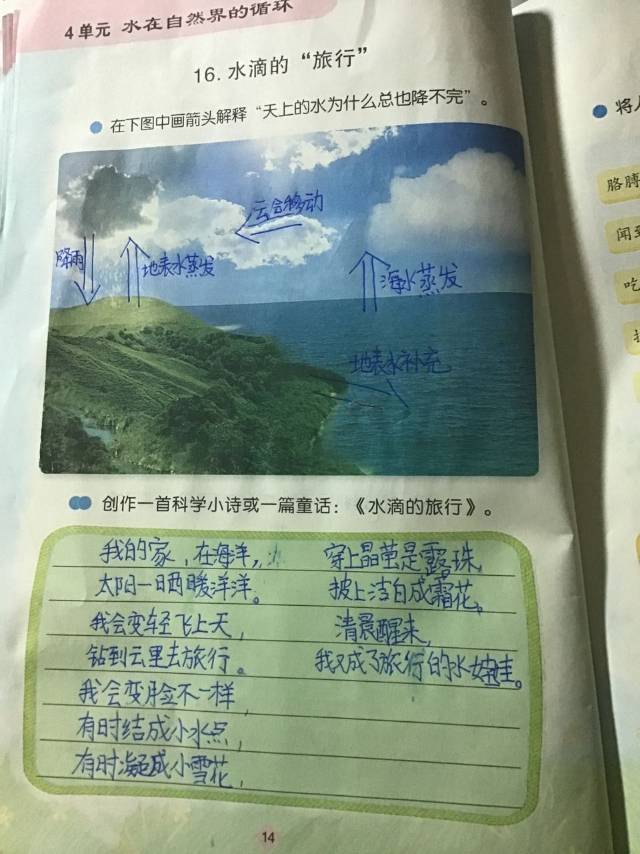 4单元 水在自然界的循环
16. 水滴的“旅行”
在下图中画箭头解释“天上的水为什么总也降不完”。
云会移动
降雨
地表水蒸发
海水蒸发
地表水补充
创作一首科学小诗或一篇童话：《水滴的旅行》。
我的家，在海洋，
太阳一晒暖洋洋。
我会变轻飞上天，
钻到云里去旅行。
我会变脸不一样，
有时结成小水点，
有时凝成小雪花，
穿上晶莹是露珠，
披上洁白成霜花。
清晨醒来，
我又成了旅行的水娃。
14
将
胳膊
闻到
吃